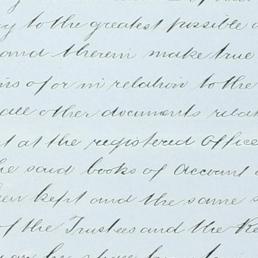 y to the greatest possible
and therein make true
ns of or in relation to the
all other documents relat
t at the registered Office
he said books of Account
hen kept and the same s
of the Trustees and the Re